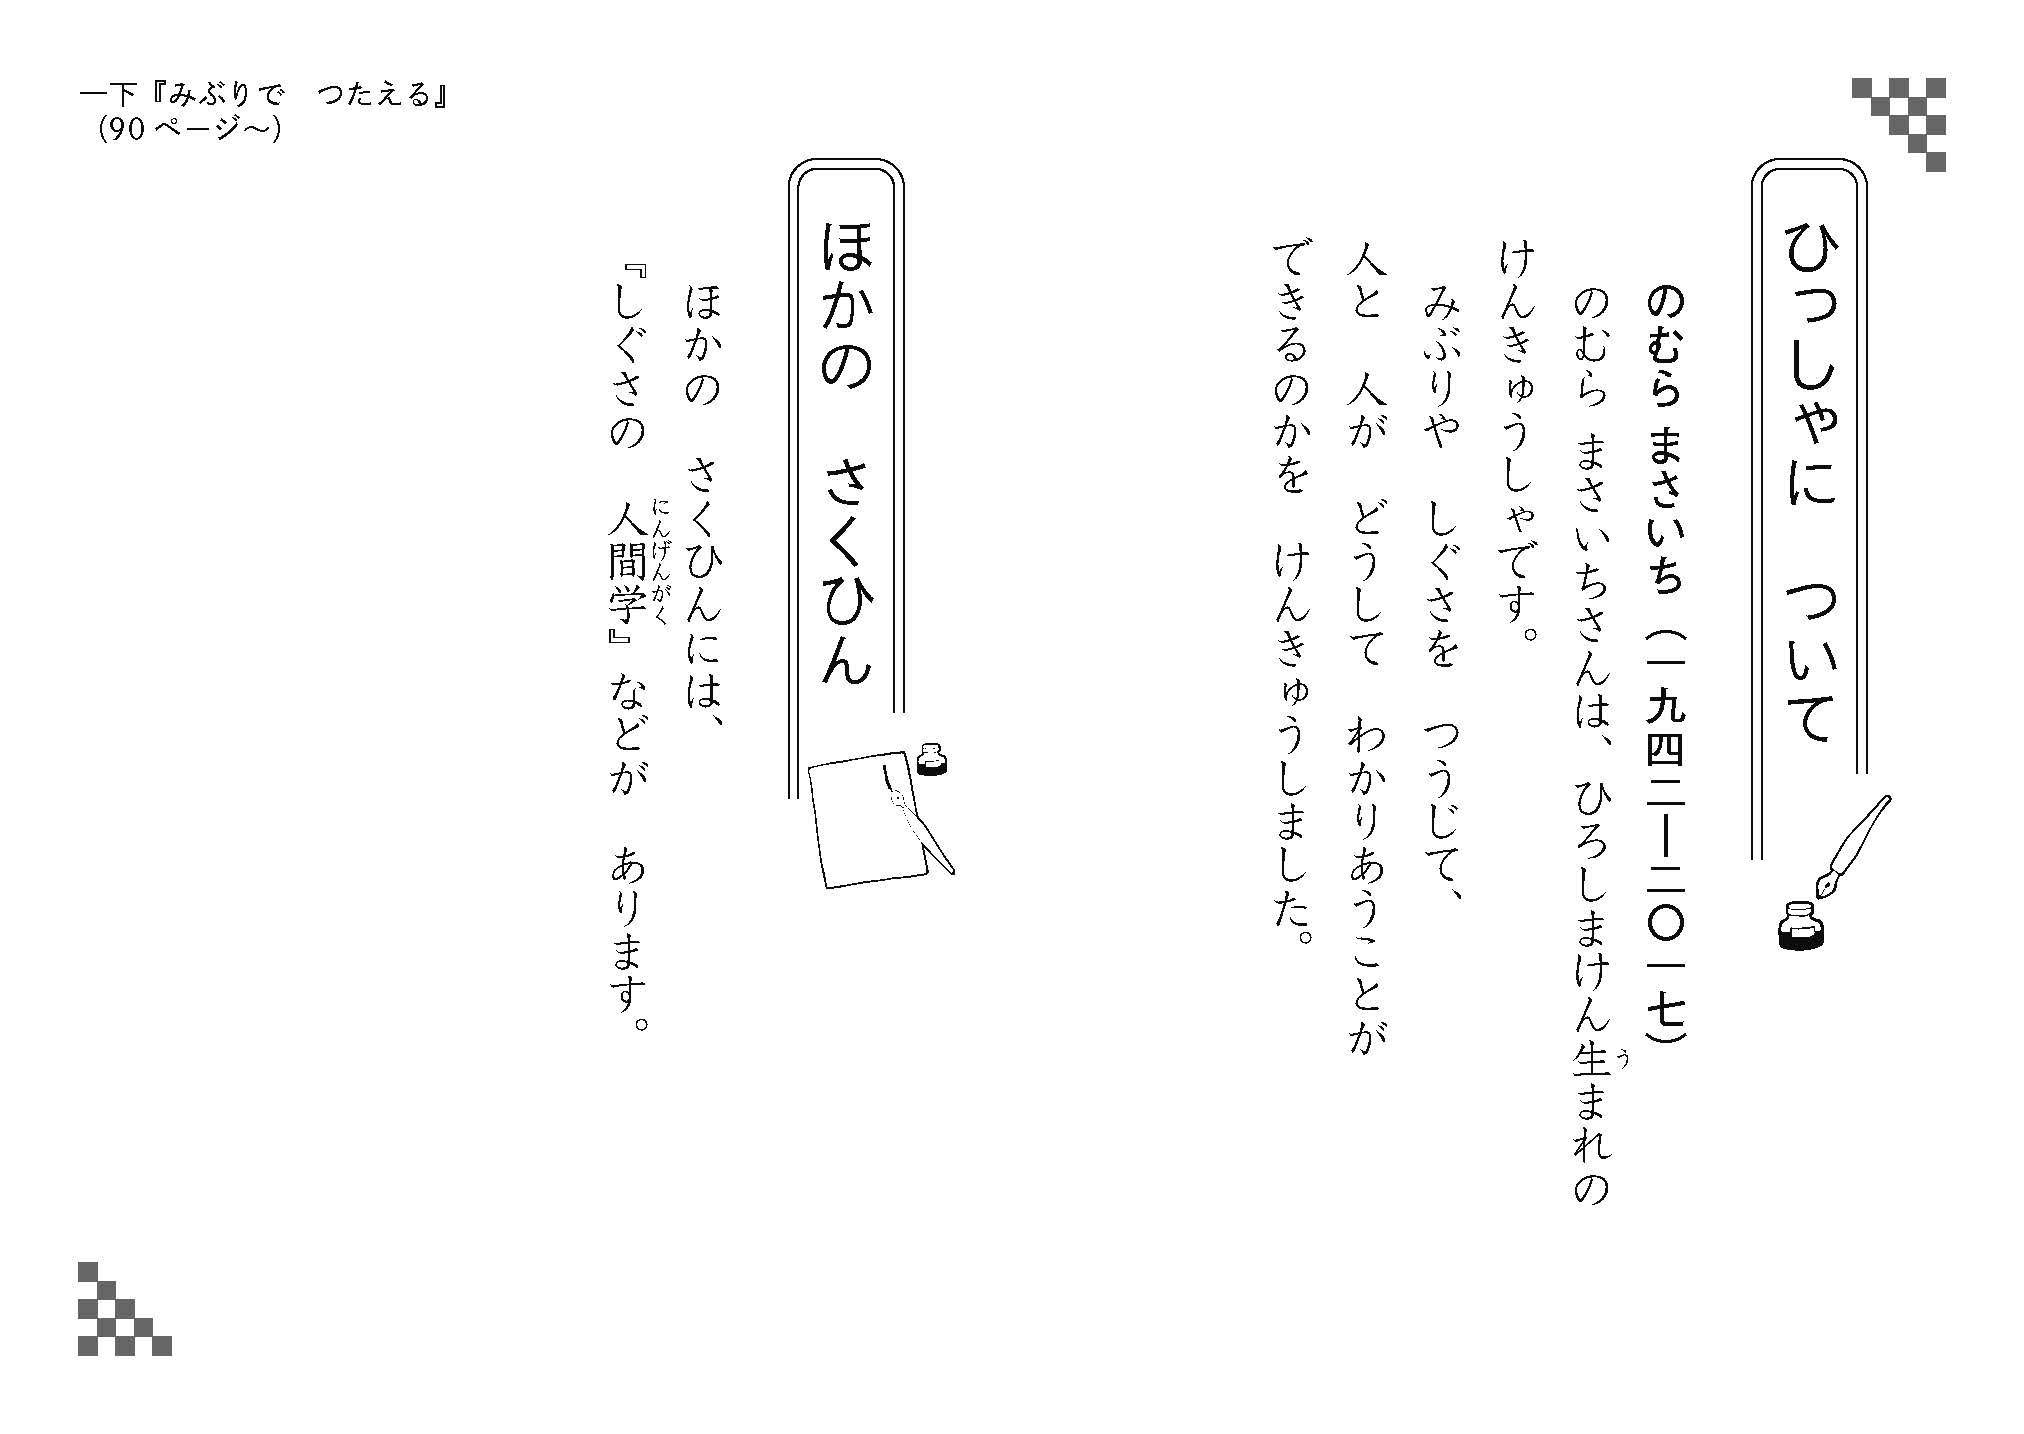 一下『みぶりで　つたえる』
(90ページ〜)
ひっしゃに　ついて
のむら まさいち（一九四二―二〇一七）
のむら まさいちさんは、ひろしまけん生まれの
う
けんきゅうしゃです。
みぶりや　しぐさを　つうじて、
人と　人が　どうして　わかりあうことが
できるのかを　けんきゅうしました。
ほかの　さくひん
ほかの　さくひんには、
『しぐさの　人間学』などが　あります。
にんげんがく